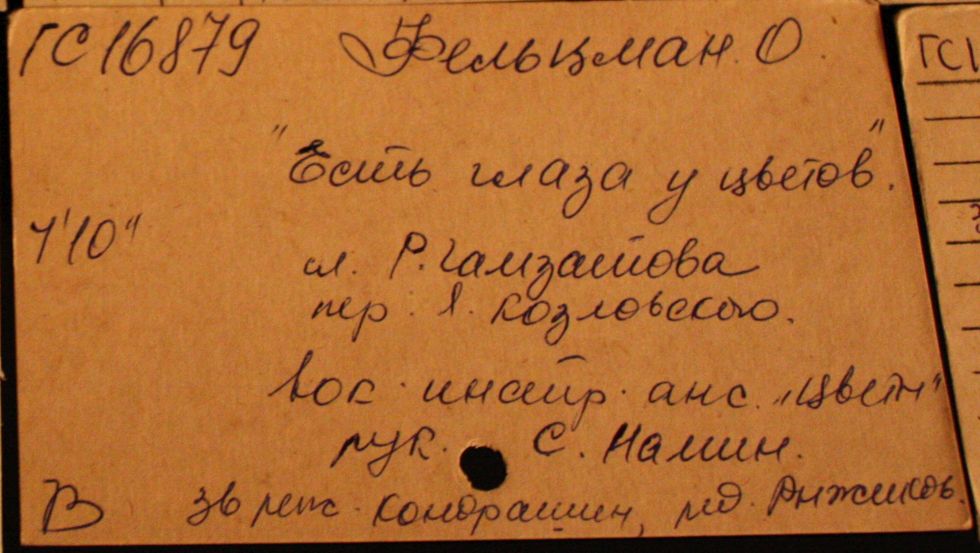 ГС16879 Фельцман. О.
"Есть глаза у цветов".
1'10"
сл. Р. Гамзатова
пер. Я. Козловского.
вок. инстр. анс. „Цветы"
рук. С. Намин.
В зв реж. Кондрашин, ред. Рыжиков.
ГС1